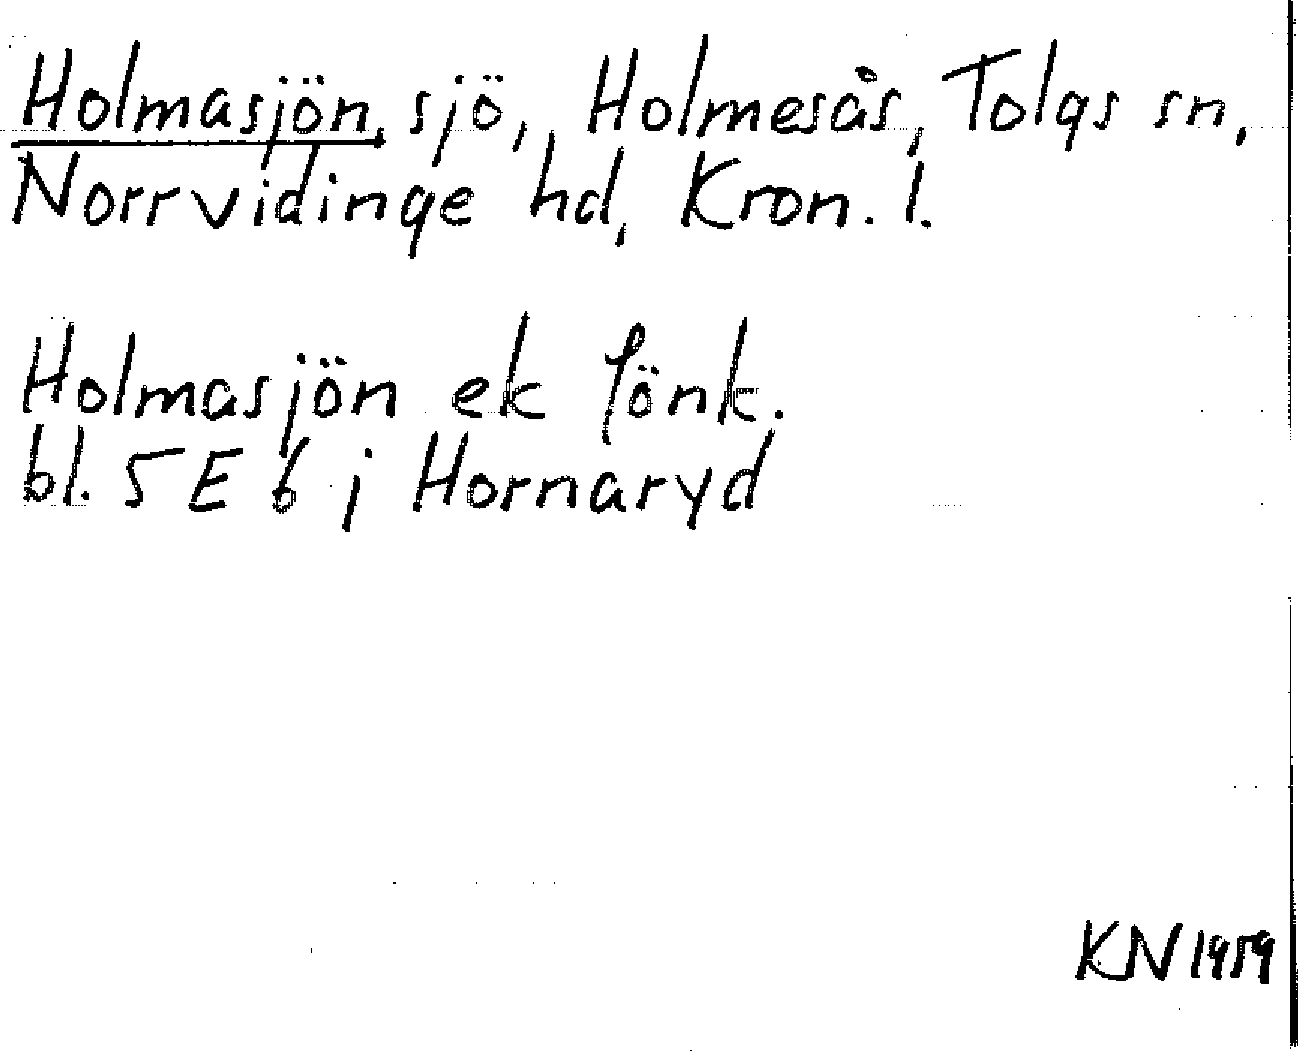 Holmasjön, sjö, Holmesås, Tolgs sn,
Norrvidinge hd, Kron. l.
Holmasjön ek fönk.
bl. 5 E 6 j Hornaryd
KN 1959